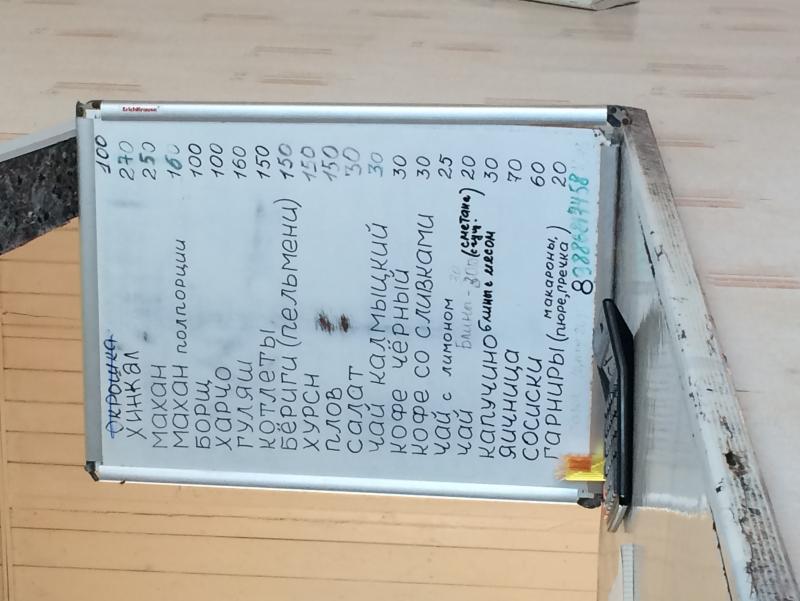 ErichKrause
ОКРОШКА 100
ХИНКАЛ 270
МАХАН 250
МАХАН ПОЛПОРЦИИ 160
БОРЩ 100
ХАРЧО 100
ГУЛЯШ 160
КОТЛЕТЫ 150
БЁРИГИ (ПЕЛЬМЕНИ) 150
ХУРСН 150
ПЛОВ 150
САЛАТ 30
ЧАЙ КАЛМЫЦКИЙ 30
КОФЕ ЧЁРНЫЙ 30
КОФЕ СО СЛИВКАМИ 30
ЧАЙ С ЛИМОНОМ 25
Блины - 30 (сметана сгущ.)
ЧАЙ 20
блины с мясом
КАПУЧИНО 30
ЯИЧНИЦА 70
СОСИСКИ 60
ГАРНИРЫ (МАКАРОНЫ, ПЮРЕ, ГРЕЧКА) 20